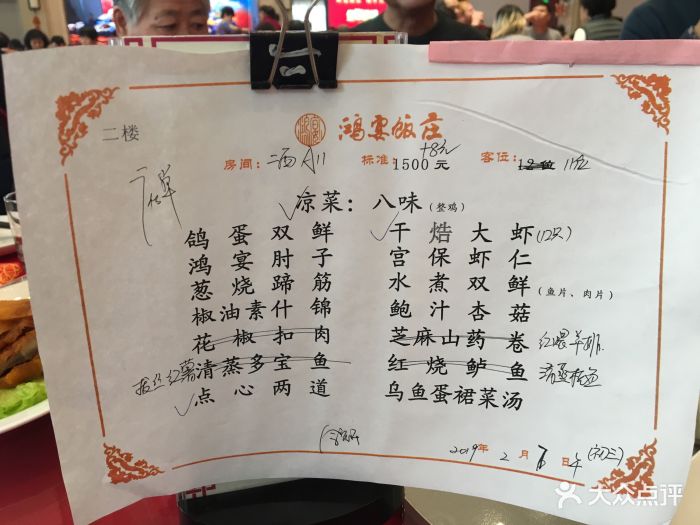 二楼
鸿宴饭庄
房间: 标准: 1500元 客位: 12位 11位
凉菜：八味(整鸡)
鸽蛋双鲜 干㸆大虾(12只)
鸿宴肘子 宫保虾仁
葱烧蹄筋 水煮双鲜(鱼片、肉片)
椒油素什锦 鲍汁杏菇
花椒扣肉 芝麻山药卷 红煨羊排
拔丝红薯 清蒸多宝鱼 红烧鲈鱼
点心两道 乌鱼蛋裙菜汤
2019年2月 日 (初三)
大众点评